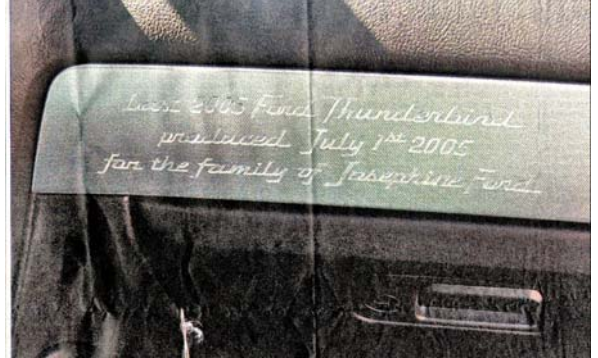 Last 2005 Ford Thunderbird
produced July 1st 2005
for the family of Josephine Ford